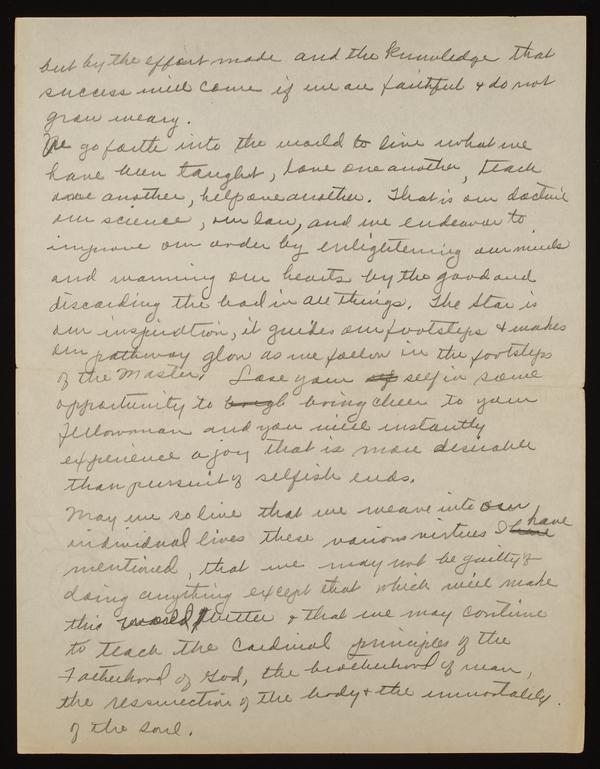 but by the effort made and the knowledge that
success will come if we are faithful & do not
grow weary.
We go forth into the world to live what we
have been taught, love one another, teach
one another, help one another. That is our doctrine
our science, our law, and we endeavor to
improve our order by enlightening our minds
and warming our hearts by the good and
discarding the bad in all things. The Star is
our inspiration, it guides our footsteps & makes
our pathway glow as we follow in the footsteps
of the Master. Lose your self in some
opportunity to bring cheer to your
fellowman and you will instantly
experience a joy that is more desirable
than pursuit of selfish ends.
May we so live that we weave into our
individual lives these various virtues I have
mentioned, that we may not be guilty of
doing anything except that which will make
this world better & that we may continue
to teach the Cardinal principles of the
Fatherhood of God, the brotherhood of man,
the ressurection of the body & the immortality
of the soul.